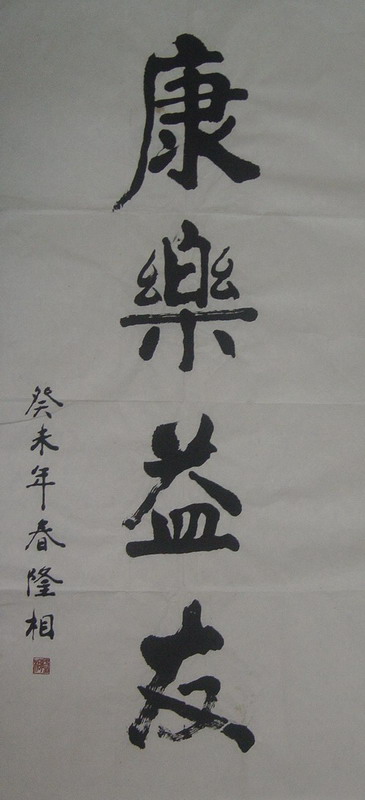 康樂益友
癸未年春隆相